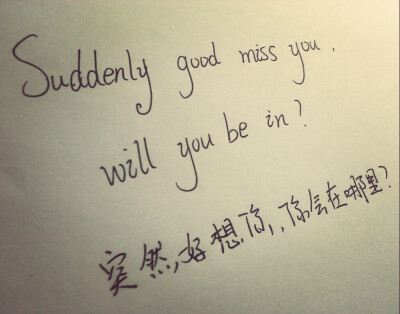 Suddenly good miss you.
will you be in?
突然,好想你,,你会在哪里?